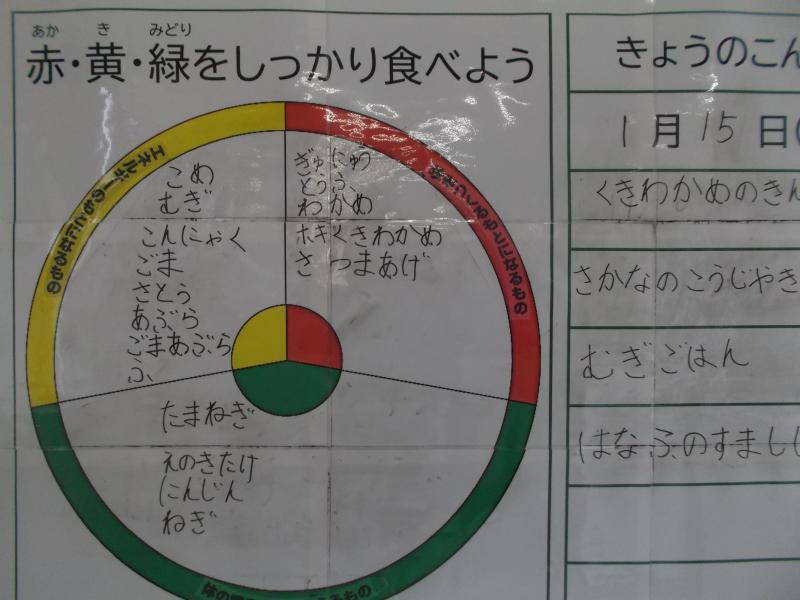 あか き みどり
赤・黄・緑をしっかり食べよう
エネルギーのもとになるもの
こめ
むぎ
こんにゃく
ごま
さとう
あぶら
ごまあぶら
ふ
体をつくるもとになるもの
ぎゅにゅう
とうふ
わかめ
ホキくきわかめ
さつまあげ
たまねぎ
えのきたけ
にんじん
ねぎ
体の
るもの
きょうのこん
1月15日(
くきわかめのきん
さかなのこうじやき
むぎごはん
はなふのすまし